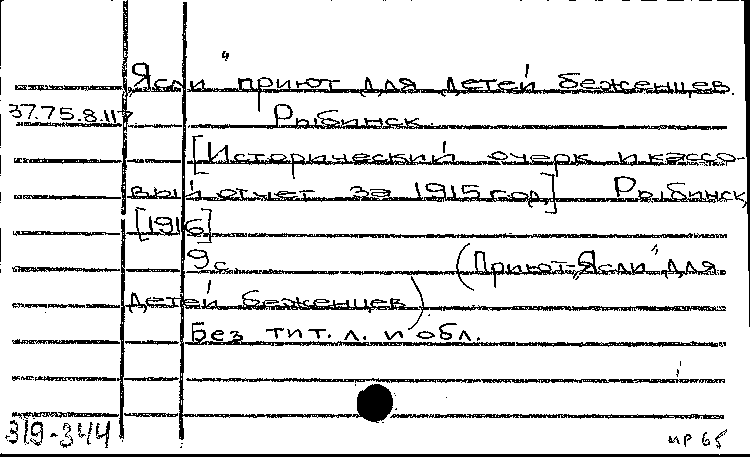 „Ясли" приют для детей беженцев.
37.75.8.117 Рыбинск.
[Исторический очерк и кассо-
вый отчет за 1915 год.] Рыбинск,
[1916]
9с. (Приют-„Ясли" для
детей беженцев)
Без тит. л. и обл.
319-344 ир 65